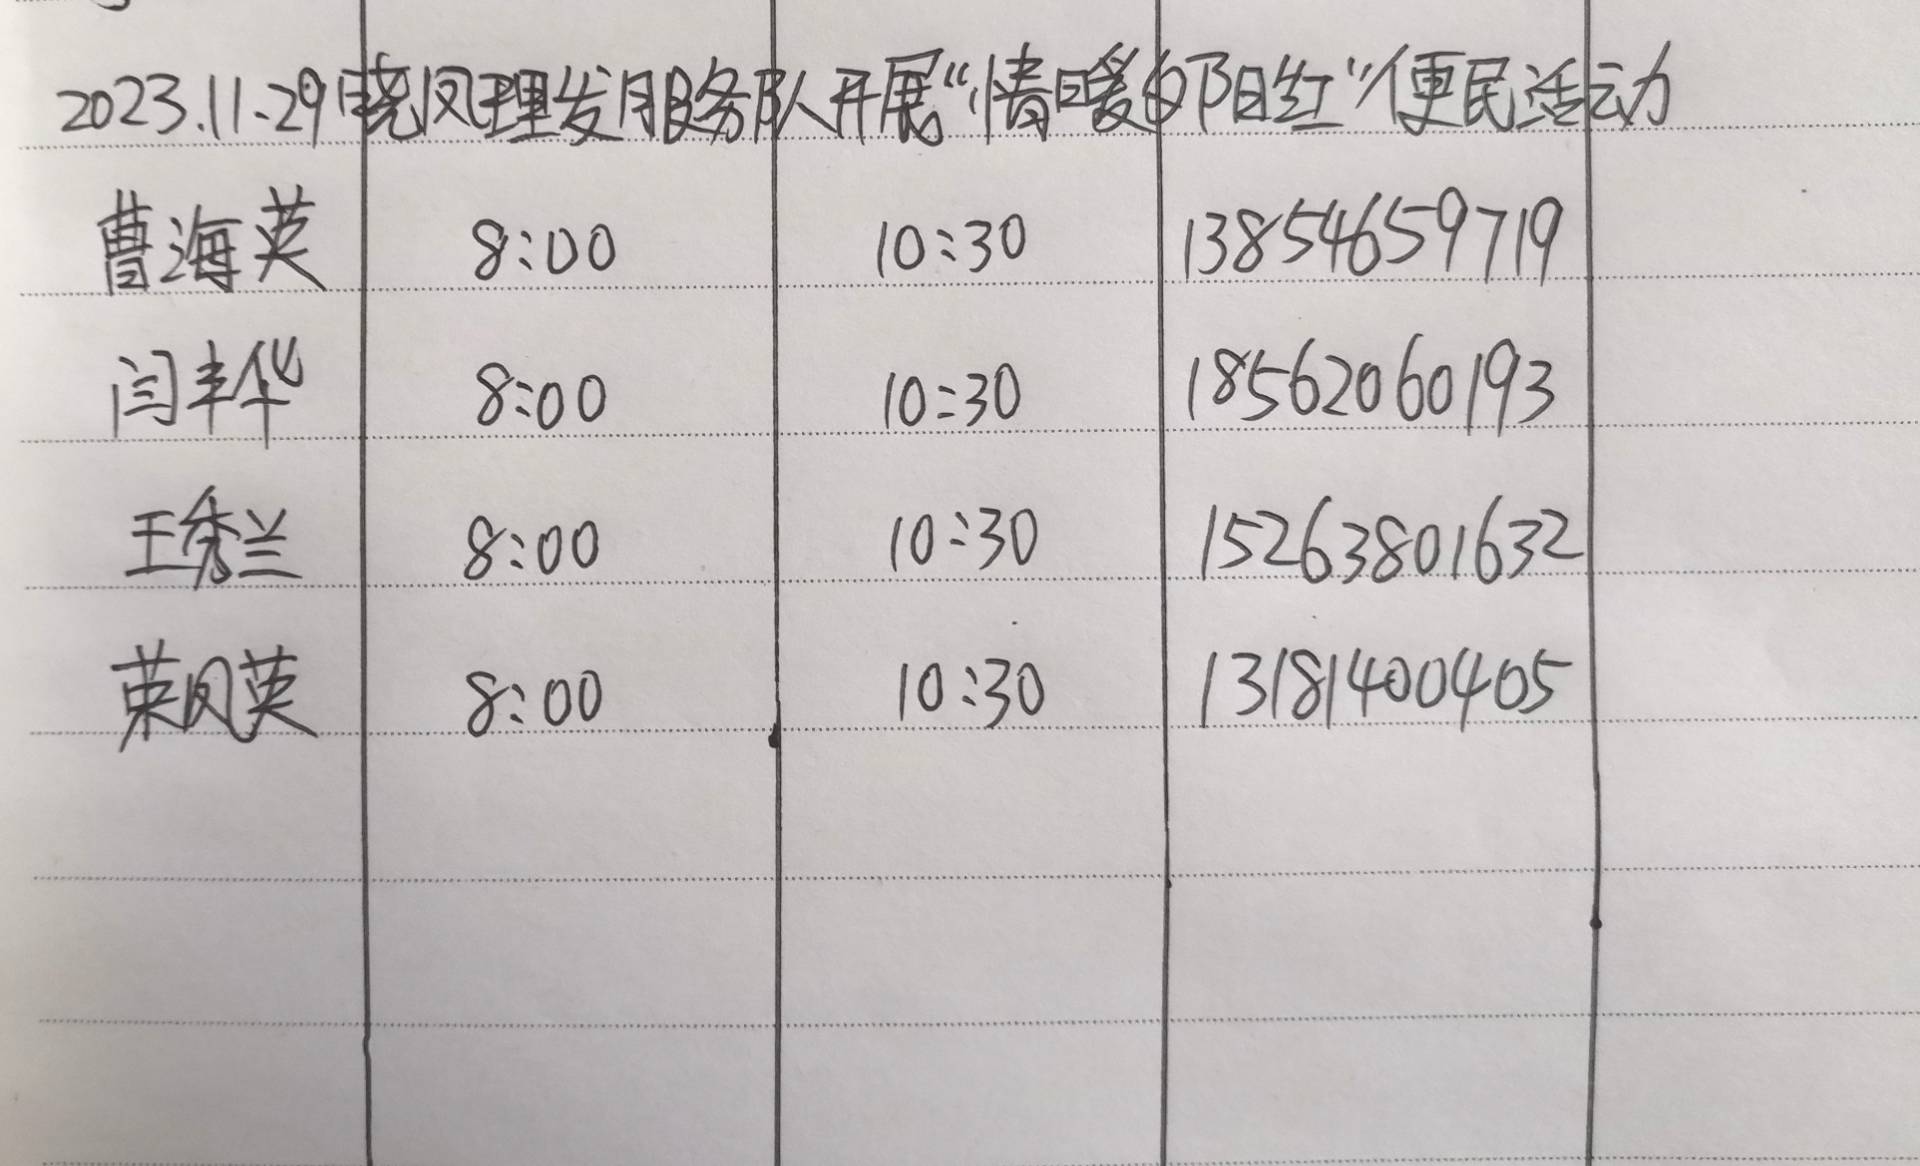 2023.11.29晓凤理发服务队开展“情暖夕阳红”便民活动
曹海英 8:00 10:30 13854659719
闫丰华 8:00 10:30 18562060193
王秀兰 8:00 10:30 15263801632
荣凤英 8:00 10:30 13181400405